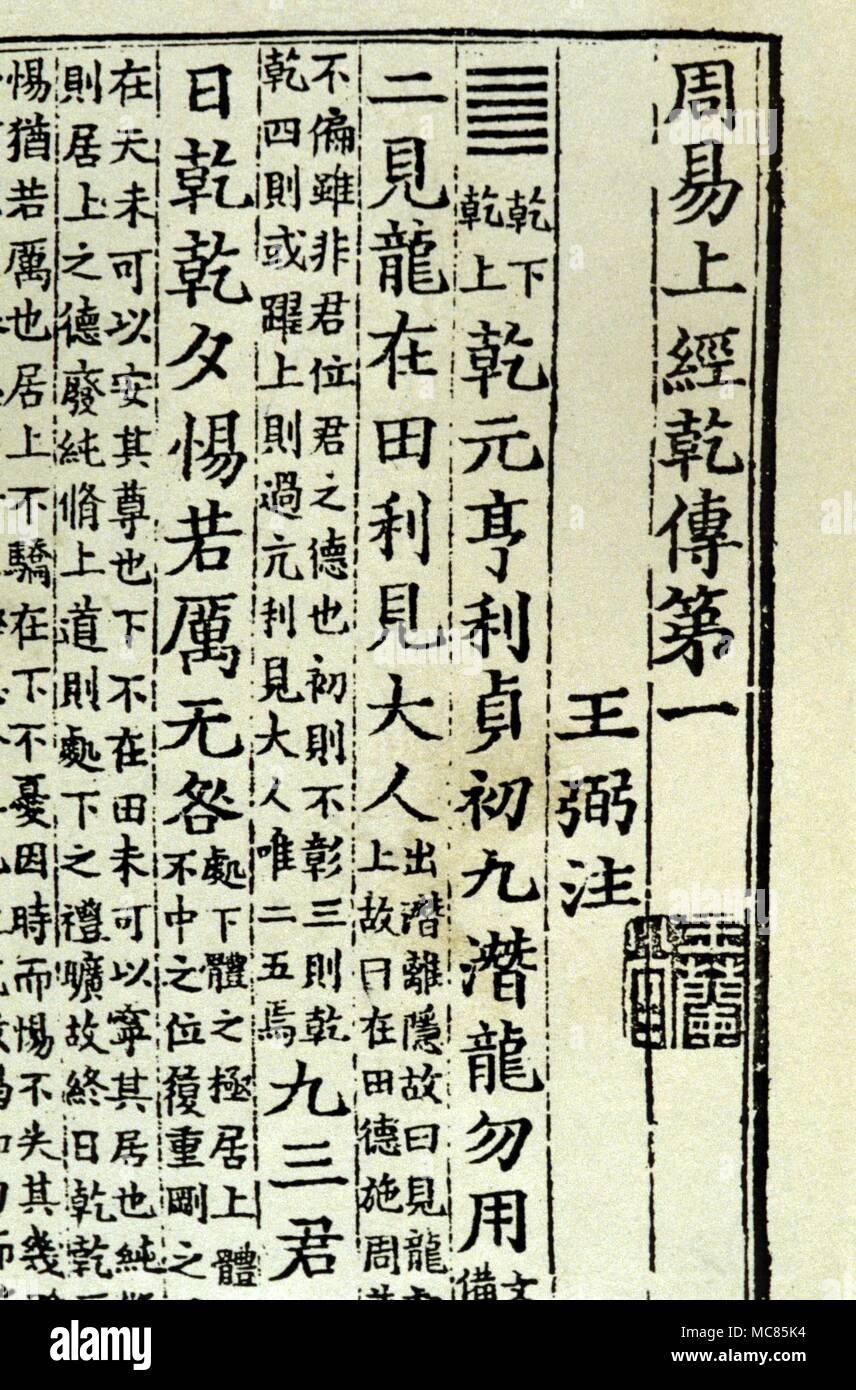 周易上經乾傳第一
王弼注
乾下
乾上
乾元亨利貞初九潛龍勿用
文
備
二見龍在田利見大人
出潛離隱故曰見龍
上故曰在田德施周
不偏雖非君位君之德也初則不彰三則乾
乾四則或躍上則過亢利見大人唯二五焉
九三君
日乾乾夕惕若厲无咎
處下體之極居上體
不中之位履重剛之
在天未可以安其尊也下不在田未可以寧其居也純
則居上之德廢純脩上道則處下之禮曠故終日乾乾
惕猶若厲也居上不驕在下不憂因時而惕不失其幾
alamy stock photo
MC85K4
www.alamy.com